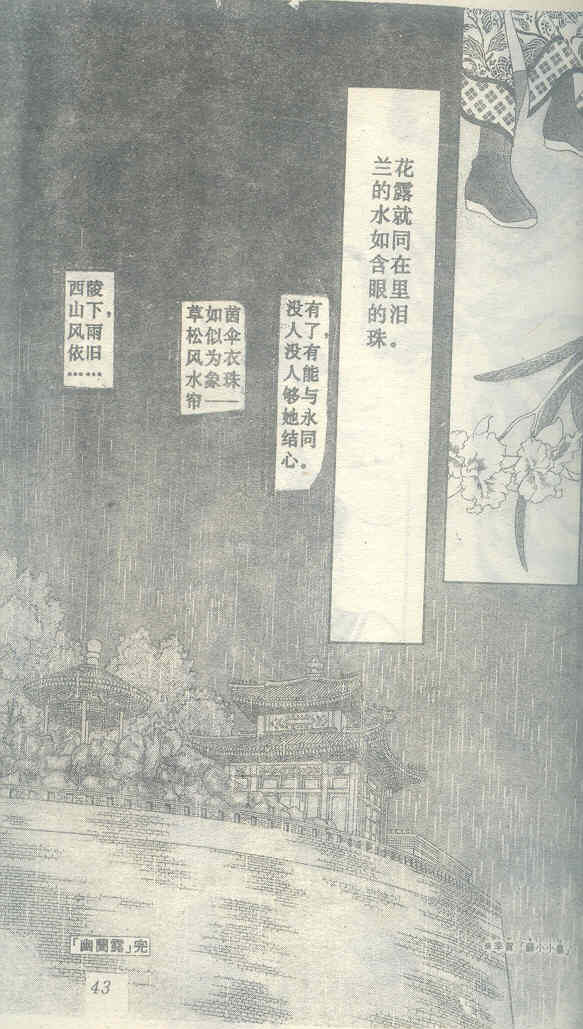 兰花
的露
水就
如同
含在
眼里
的泪
珠。
没有
人了，
没有
人能
够与
她永
结同
心。
草如茵
松似伞
风为衣
水象珠
帘——
西陵
山下，
风雨
依旧
……
※李賀「蘇小小墓」
「幽蘭露」完
43